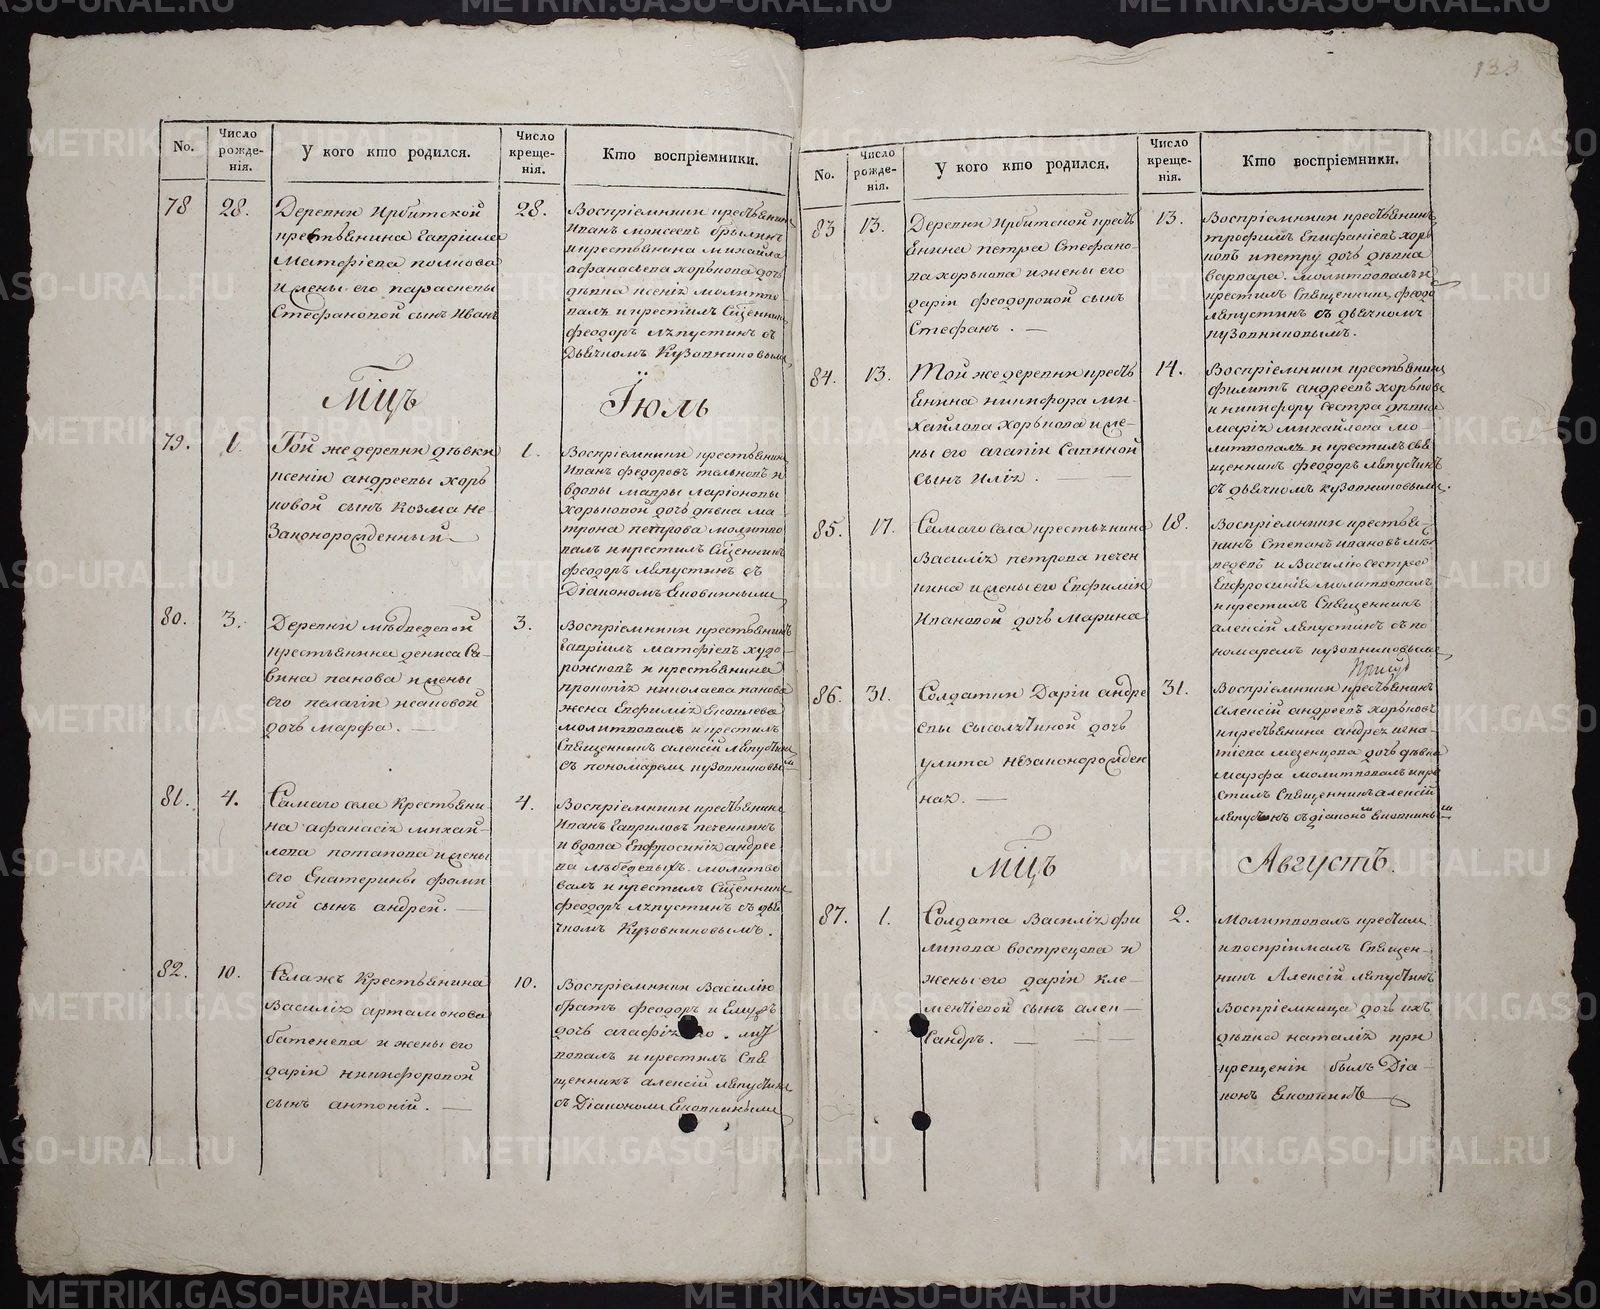 133
No.
Число рожде-нія.
У кого кто родился.
Число креще-нія.
Кто воспріемники.
78
28.
Деревни Ирбитской
крестьянина Гавріила
Матфіева
и жены его параскевы
Стефановой сынъ Иванъ
28.
Воспріемники крестьянинъ
Иванъ моисеевъ
и крестьянина михайла
афанасьева хорькова дочь
девка ксенія молитво
валъ и крестилъ Священникъ
феодоръ ляпустинъ съ
дьячкомъ Кузовниковымъ
Мцъ
Іюль
79.
1.
Той же деревни девки
ксеніи андреевы хорь
ковой сынъ козма не-
законорожденный
1.
Воспріемники крестьянинъ
Иванъ федоровъ и
вдовы мавры ларіоновы
хорьковой дочь девка ма-
трона петрова молитво
валъ и крестилъ Священникъ
феодоръ ляпустинъ съ
Діакономъ
80.
3.
Деревни медведевой
крестьянина дениса Са-
вина панова и жены
его пелагіи исаковой
дочь марфа.
3.
Воспріемники крестьянинъ
Гавріилъ матфіевъ худо
рожковъ и крестьянина
прокопія николаева панова
жена Евфимія Яковлева
молитвовалъ и крестилъ
Священникъ алексій ляпустинъ
съ пономаремъ кузовниковымъ
81.
4.
Самаго села Крестьяни-
на афанасія михай-
лова потапова и жены
его Екатерины фоми
ной сынъ андрей.
4.
Воспріемники крестьянинъ
Иванъ Гавриловъ печенкинъ
и вдова Евфросинія андрее
ва молитво
валъ и крестилъ Священникъ
феодоръ ляпустинъ съ дья
чкомъ Кузовниковымъ.
82.
10.
Села жъ Крестьянина
Василія артамонова
батенева и жены его
даріи никифоровой
сынъ антоній.
10.
Воспріемники Василію
братъ феодоръ и
дочь агафія
вовалъ и крестилъ Свя
щенникъ алексій ляпустинъ
съ Діакономъ
No.
Число рожде-нія.
У кого кто родился.
Число креще-нія.
Кто воспріемники.
83
13.
Деревни Ирбитской крестья
янина петра Стефано-
ва хорькова и жены его
даріи феодоровой сынъ
Стефанъ.
13.
Воспріемники крестьянинъ
трофимъ Епифаніевъ хорь
ковъ и петру дочь девка
варвара. молитвовалъ и
крестилъ Священникъ феодо
ляпустинъ съ дьячкомъ
кузовниковымъ.
84.
13.
Той же деревни кресть
янина никифора ми-
хайлова хорькова и же-
ны его агапіи Савиной
сынъ илія.
14.
Воспріемники крестьянинъ
филиппъ андреевъ хорьковъ
и никифору сестра девка
марія михайлова мо-
литвовалъ и крестилъ свя
щенникъ феодоръ ляпустинъ
съ дьячкомъ кузовниковымъ.
85.
17.
Самаго села крестьянина
Василія петрова печен
кина и жены его Евфиміи
Ивановой дочь марина
18.
Воспріемники крестья-
нинъ Степанъ ивановъ
и Василію сестра
Евфросинія молитвовалъ
и крестилъ Священникъ
алексій ляпустинъ съ по
номаремъ кузовниковымъ
86.
31.
Солдатки Даріи андре
евы дочь
улита незаконорожден
ная.
31.
Воспріемники крестьянинъ
Алексій андреевъ хорьковъ
и крестьянина андрея игна-
тіева мезенцова дочь девка
марфа молитвовалъ и кре
стилъ Священникъ алексій
ляпустинъ съ діакономъ
Мцъ
Августъ.
87.
1.
Солдата Василія фи
липова вострецова и
жены его даріи кле-
ментіевой сынъ алек-
сандръ.
2.
Молитвовалъ крестилъ
и воспріималъ Священ-
никъ Алексій ляпустинъ
Воспріемница дочь ихъ
девка наталія при
крещеніи былъ Діа-
конъ